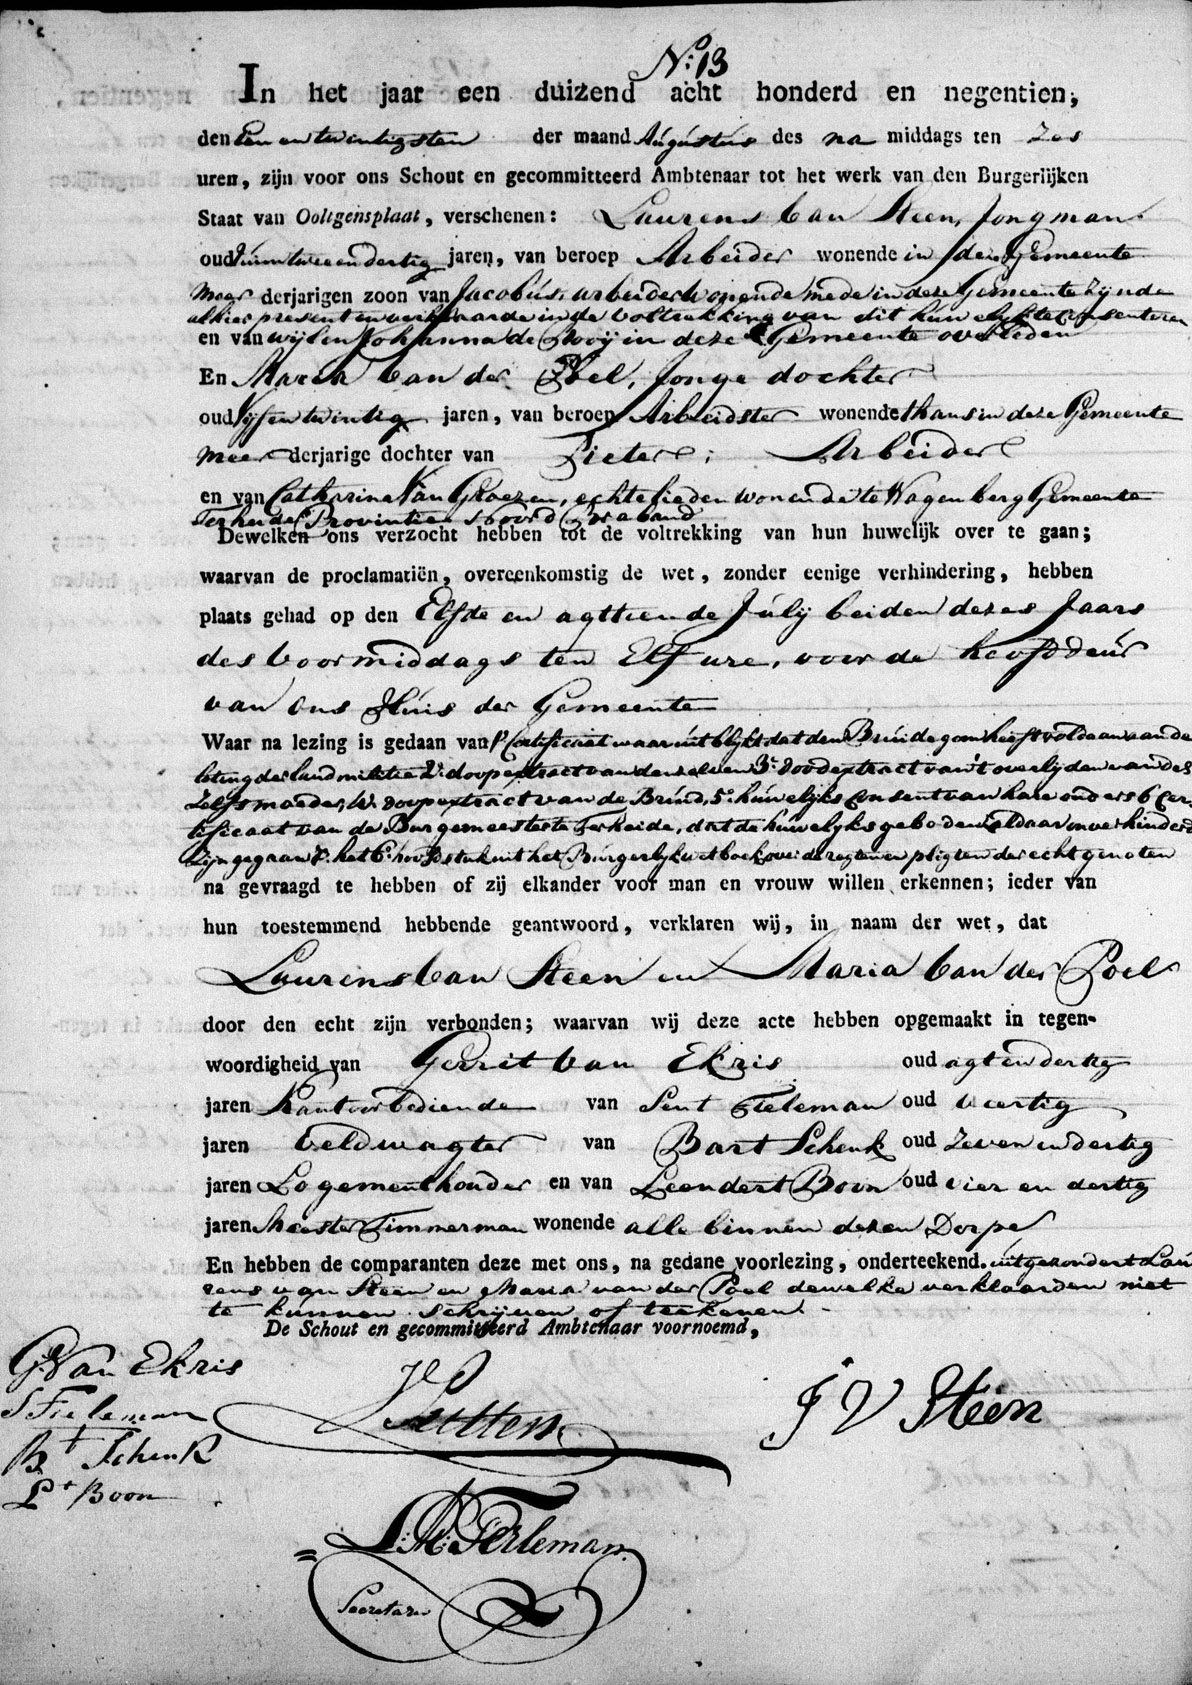 N:o 13
In het jaar een duizend acht honderd en negentien,
den Een en twintigsten der maand Augustus des na middags ten Zes
uren, zijn voor ons Schout en gecommitteerd Ambtenaar tot het werk van den Burgerlijken
Staat van Ooltgensplaat, verschenen: Laurens van Steen, Jongman
oud Ruim twee en dertig jaren, van beroep Arbeider wonende in deze Gemeente
meer derjarigen zoon van Jacobus, arbeider wonende mede in deze Gemeente zijnde
alhier present en verklaarde in de voltrekking van dit huwelijk te consenteren
en van wijlen Johanna de Rooij in deze Gemeente overleden
En Maria van der Poel, Jonge dochter
oud Vijf en twintig jaren, van beroep Arbeidster wonende thans in deze Gemeente
meer derjarige dochter van Pieter, Arbeider
en van Catharina Van Gloezen, echtelieden wonende te Wagenberg Gemeente
Terheide Provintie Noord Braband
Dewelken ons verzocht hebben tot de voltrekking van hun huwelijk over te gaan;
waarvan de proclamatiën, overeenkomstig de wet, zonder eenige verhindering, hebben
plaats gehad op den Elfde en agttiende Julij beiden dezes Jaars
des voormiddags ten Elf ure, voor de hoofddeur
van ons Huis der Gemeente
Waar na lezing is gedaan van 1o Certificaat waar uit blykt dat den Bruidegom heeft voldaan aan de
loting der landmilitie 2o doopextract van denzelven 3o doodextract van 't overlijden van des
zelfs moeder, 4o doopextract van de Bruid, 5o huwelijks consent van hare ouders 6 Cer-
tificaat van de Burgemeester te Terheide, dat de huwelyks geboden aldaar onverhinderd
zijn gegaan 7o het 6o hoofdstuk uit het Burgerlijk wetboek over de regten en pligten der echtgenoten
na gevraagd te hebben of zij elkander voor man en vrouw willen erkennen; ieder van
hun toestemmend hebbende geantwoord, verklaren wij, in naam der wet, dat
Laurens van Steen en Maria van der Poel
door den echt zijn verbonden; waarvan wij deze acte hebben opgemaakt in tegen-
woordigheid van Gerrit van Ekris oud agt en dertig
jaren Kantoorbediende van Sent Tieleman oud veertig
jaren veldwagter van Bart Schenk oud zeven en dertig
jaren Logementhouder en van Leendert Boon oud vier en dertig
jaren Meester Timmerman wonende alle binnen dezen Dorpe
En hebben de comparanten deze met ons, na gedane voorlezing, onderteekend. uitgezondert Lau
rens van Steen en Maria van der Poel dewelke verklaarden niet
te kunnen schrijven of teekenen.
De Schout en gecommitteerd Ambtenaar voornoemd,
G: Van Ekris
S Tieleman
Bt Schenk
Lt Boon
J V Steen
Secretaris